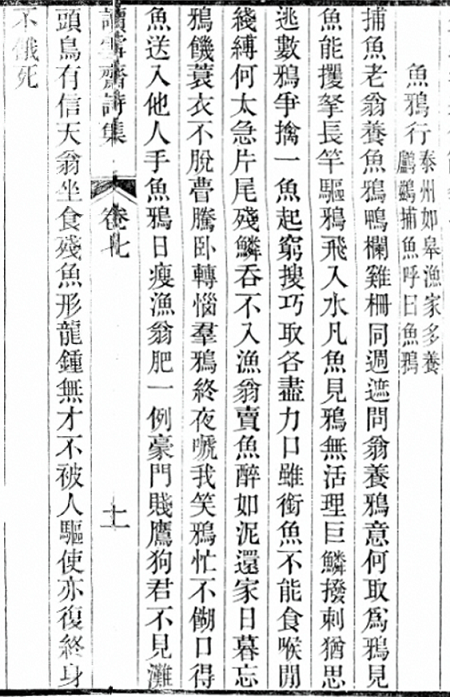 魚鴉行泰州如皋漁家多養
鸕鷀捕魚呼曰魚鴉
捕魚老翁養魚鴉鴨欄雞柵同週遮問翁養鴉意何取爲鴉見
魚能攫拏長竿驅鴉飛入水凡魚見鴉無活理巨鱗撥刺猶思
逃數鴉爭擒一魚起窮搜巧取各盡力口雖銜魚不能食喉閒
綫縛何太急片尾殘鱗吞不入漁翁賣魚醉如泥還家日暮忘
鴉饑蓑衣不脫瞢騰臥轉惱羣鴉終夜嗁我笑鴉忙不餬口得
魚送入他人手魚鴉日瘦漁翁肥一例豪門賤鷹狗君不見灘
讀雪齋詩集 卷七 十一
頭鳥有信天翁坐食殘魚形龍鍾無才不被人驅使亦復終身
不餓死